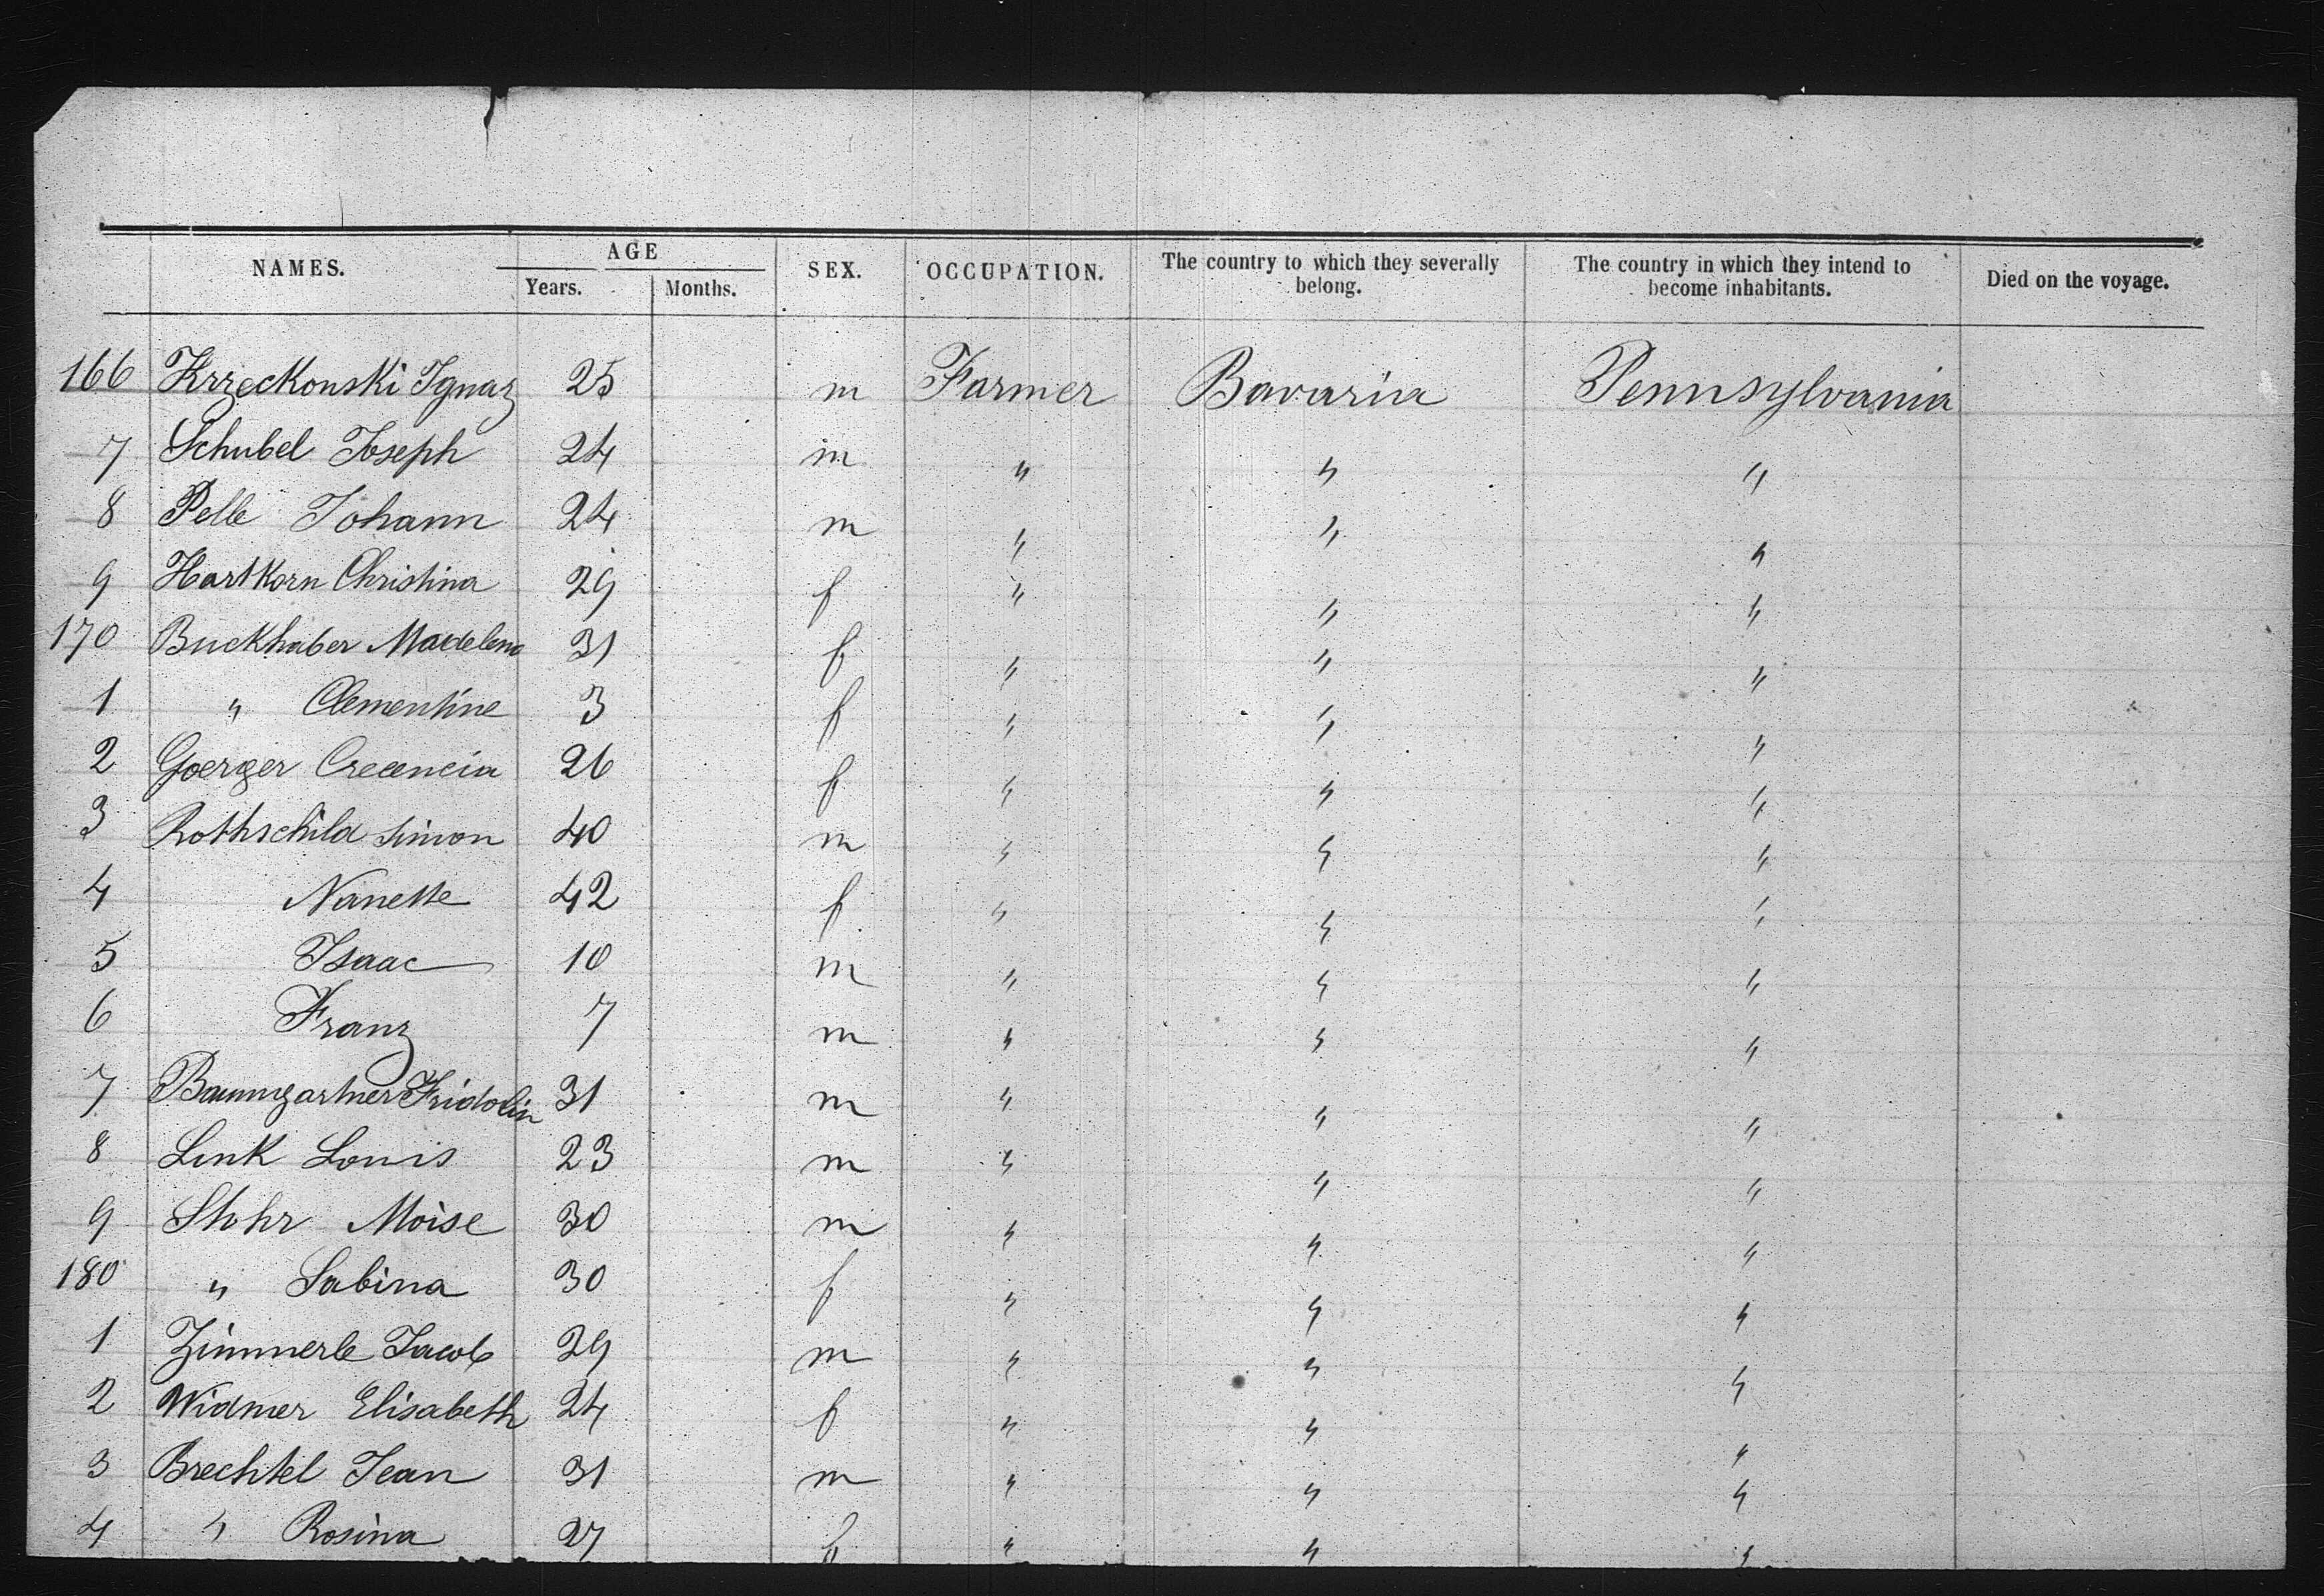 NAMES. AGE SEX. OCCUPATION. The country to which they severally belong. The country in which they intend to become inhabitants. Died on the voyage.
Years. Months.
166 Krzeckonski Ignaz 25 m Farmer Bavaria Pennsylvania
7 Schubel Joseph 24 m " " "
8 Pelle Johann 24 m " " "
9 Hartkorn Christina 29 f " " "
170 Buckhaber Madelena 31 f " " "
1 " Clementine 3 f " " "
2 Goerger Crecencia 26 f " " "
3 Rothschild Simon 40 m " " "
4 Nanette 42 f " " "
5 Isaac 10 m " " "
6 Franz 7 m " " "
7 Baumgartner Fridolin 31 m " " "
8 Link Louis 23 m " " "
9 Stohr Moise 30 m " " "
180 " Sabina 30 f " " "
1 Zimmerle Jacob 29 m " " "
2 Widmer Elisabeth 24 f " " "
3 Brechtel Jean 31 m " " "
4 " Rosina 27 f " " "